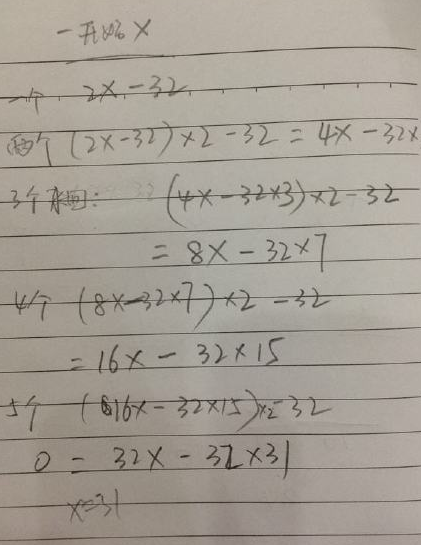 一开始 X
一个 2x-32
两个 (2x-32)×2-32=4x-32×
3个 (4x-32×3)×2-32
=8x-32×7
4个 (8x-32×7)×2-32
=16x-32×15
5个 (16x-32×15)×2-32
0=32x-32×31
x=31